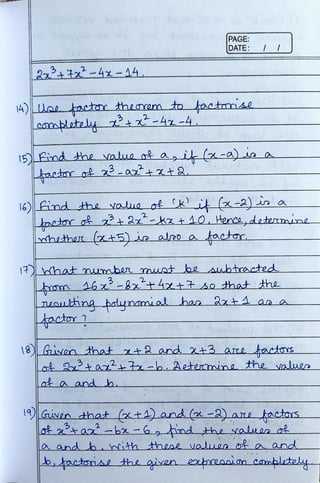 PAGE:
DATE: / /
2x³+7x²-4x-14.
14) Use factor theorem to factorise
completely x³+x²-4x-4.
15) Find the value of a, if (x-a) is a
factor of x³-ax²+x+2.
16) Find the value of 'k' if (x-2) is a
factor of x³+2x²-kx+10. Hence, determine
whether (x+5) is also a factor.
17) What number must be subtracted
from 16x³-8x²+4x+7 so that the
resulting polynomial has 2x+1 as a
factor?
18) Given that x+2 and x+3 are factors
of 2x³+ax²+7x-b. Determine the values
of a and b.
19) Given that (x+1) and (x-2) are factors
of x³+ax²-bx-6, find the values of
a and b. With these values of a and
b, factorise the given expression completely.